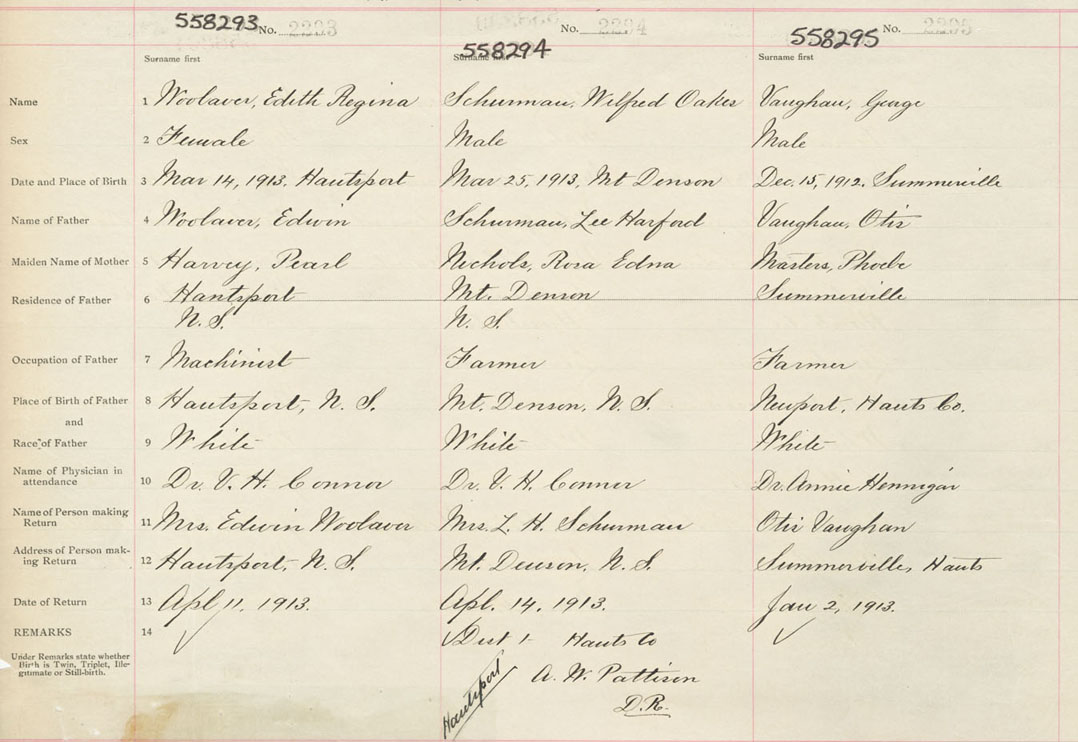 558293 No. 2293 558294 No. 2294 558295 No. 2295
Surname first Surname first Surname first
Name 1 Woolaver, Edith Regina Schurman, Wilfred Oakes Vaughan, George
Sex 2 Female Male Male
Date and Place of Birth 3 Mar 14, 1913. Hantsport Mar 25, 1913, Mt Denson Dec. 15, 1912. Summerville
Name of Father 4 Woolaver, Edwin Schurman, Lee Harford Vaughan, Otis
Maiden Name of Mother 5 Harvey, Pearl Nichols, Rosa Edna Masters, Phoebe
Residence of Father 6 Hantsport Mt. Denson Summerville
N.S. N. S.
Occupation of Father 7 Machinist Farmer Farmer
Place of Birth of Father 8 Hantsport, N. S. Mt. Denson, N. S. Newport, Hants Co.
and
Race of Father 9 White White White
Name of Physician in
attendance 10 Dr. V. H. Connor Dr. V. H. Connor Dr. Annie Hennigar
Name of Person making
Return 11 Mrs. Edwin Woolaver Mrs. L. H. Schurman Otis Vaughan
Address of Person mak-
ing Return 12 Hantsport, N. S. Mt. Denson, N. S. Summerville, Hants
Date of Return 13 Apl 11, 1913. Apl. 14, 1913. Jan 2, 1913.
REMARKS 14 Dist 1 Hants Co
Under Remarks state whether
Birth is Twin, Triplet, Ille-
gitimate or Still-birth.
Hantsport A. W. Pattison
D.R.